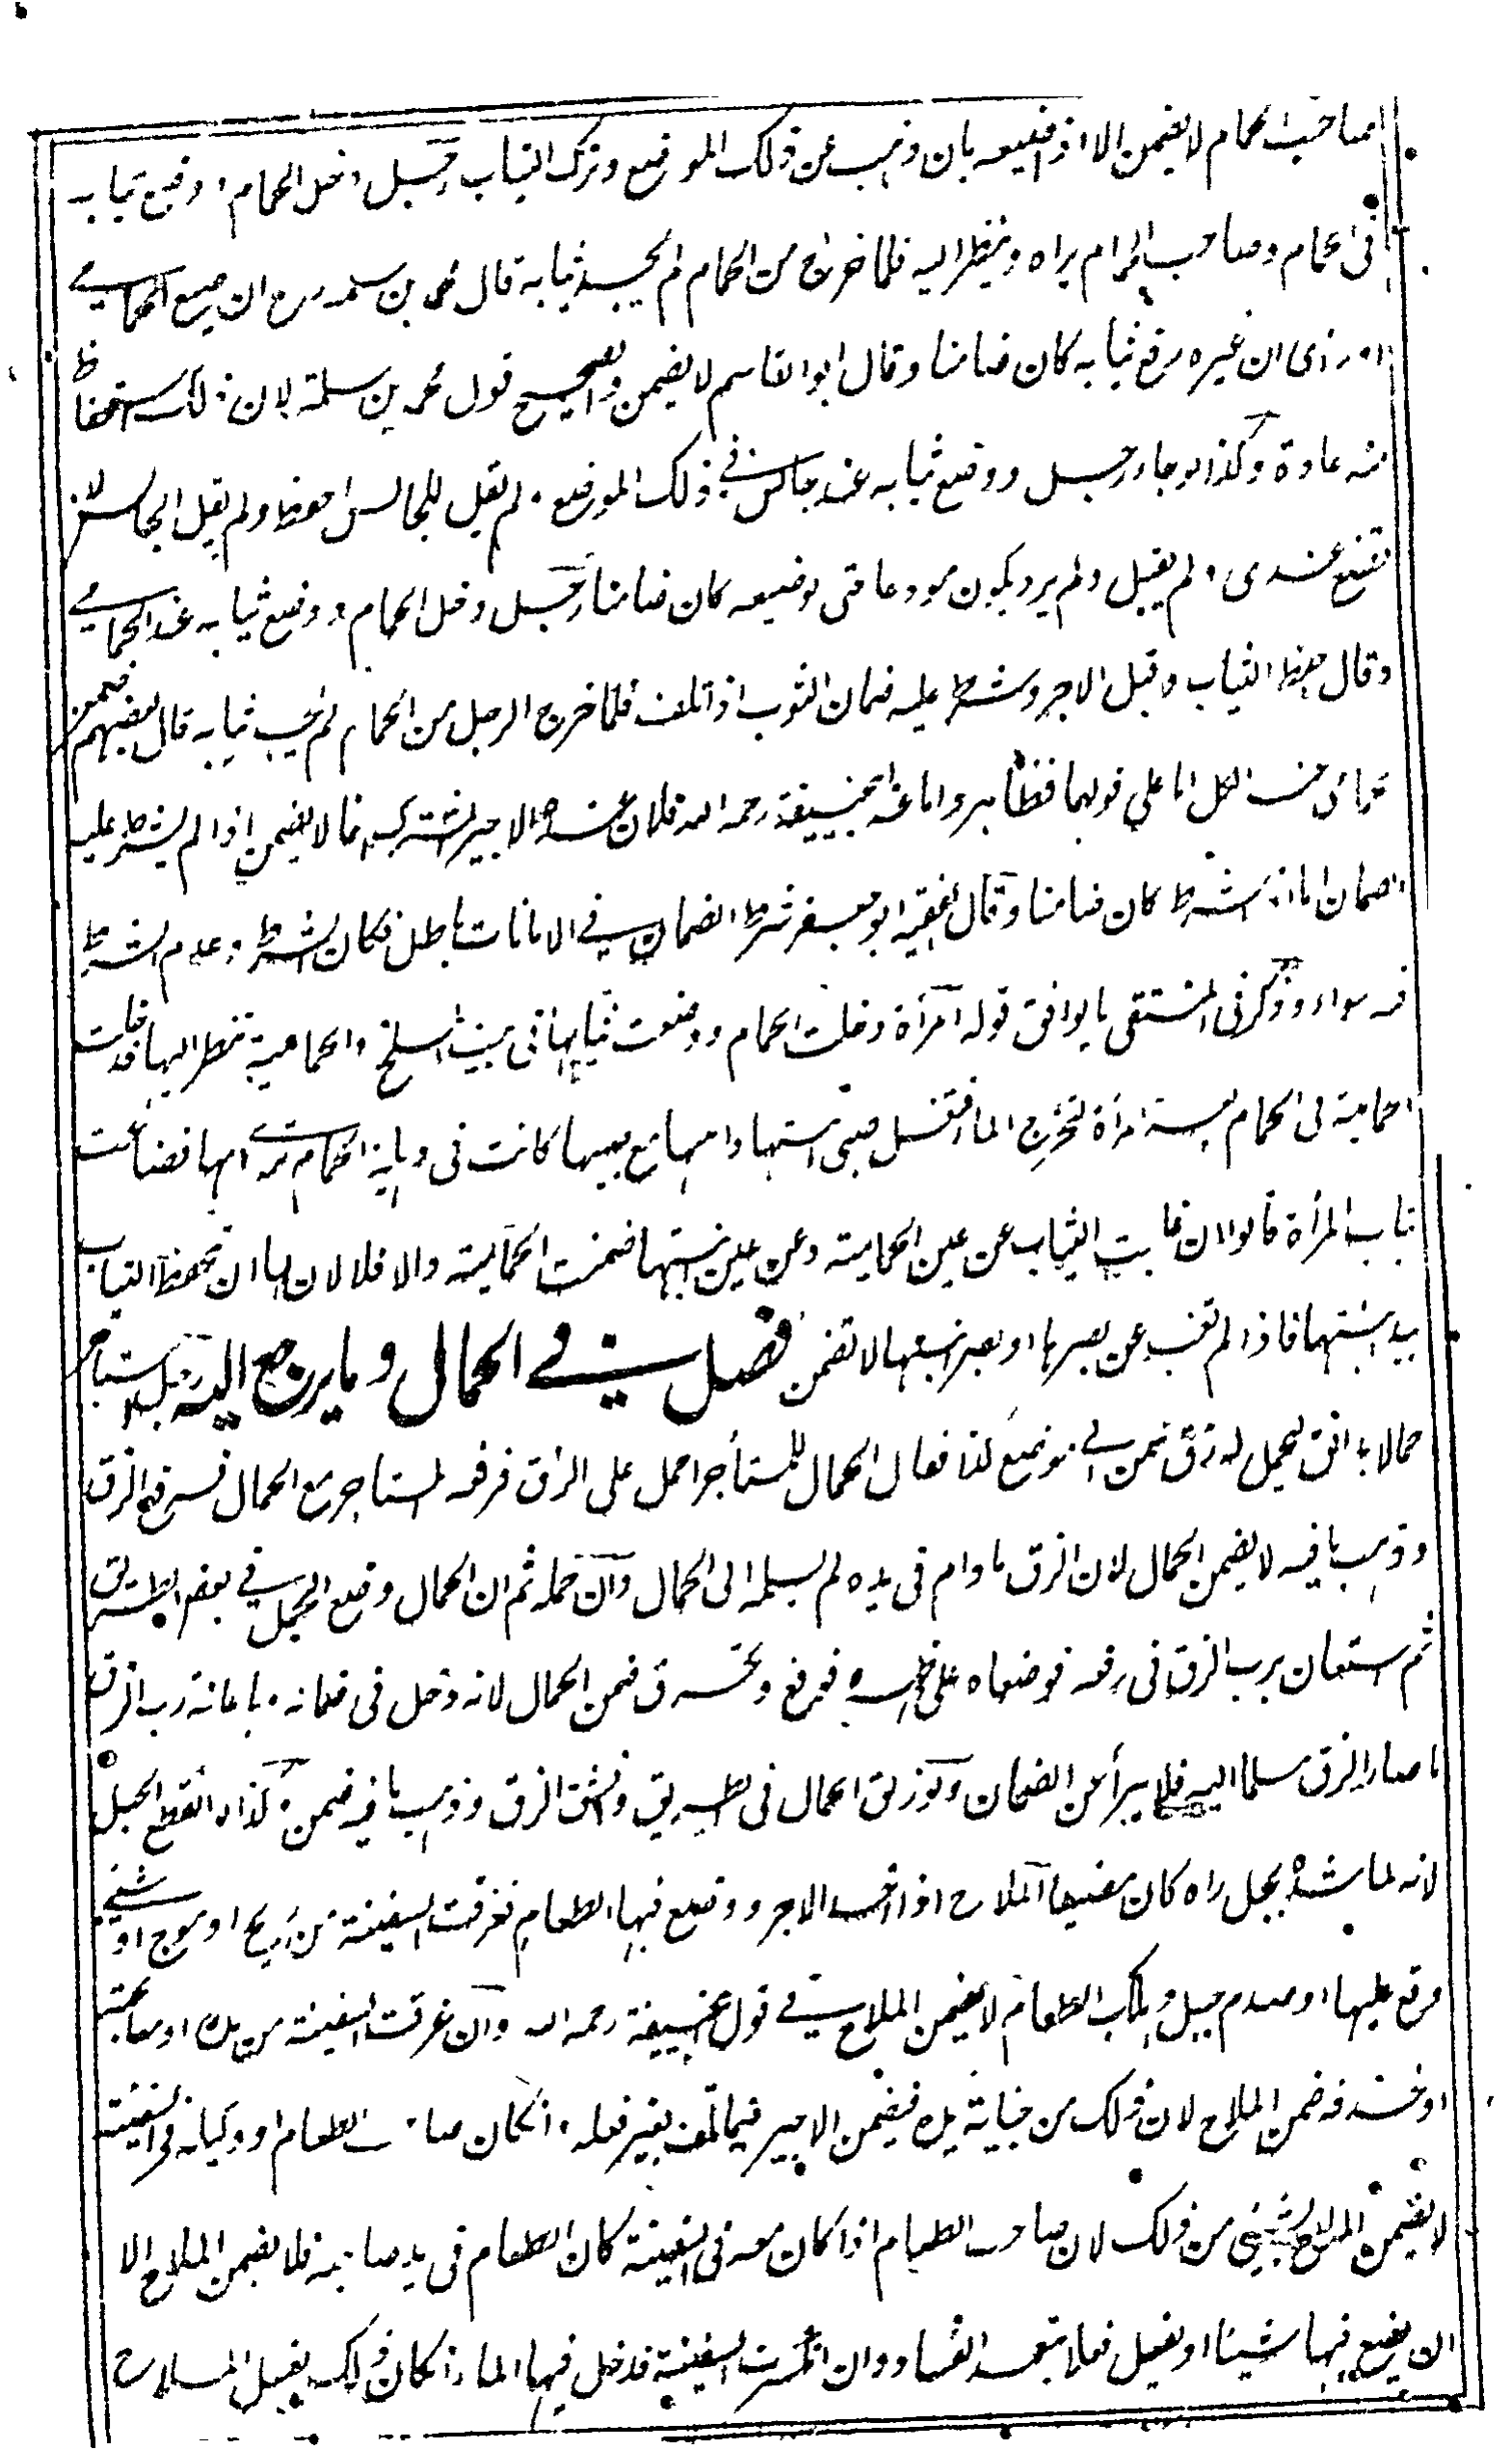 صاحب الحمام لا يضمن الا اذا ضيعه بان ذهب عن ذلك الموضع وترك الثياب رجل دخل الحمام ووضع ثيابه
في الحمام وصاحب الحمام يراه وينظر اليه فلما خرج من الحمام لم يجد ثيابه قال محمد بن سلمه رح ان ضيع الحمامي
او رأى ان غيره رفع ثيابه كان ضامنا وقال ابو القاسم لا يضمن والصحيح قول محمد بن سلمة لان ذلك استحفاظ
منه عادة وكذا لو جاء رجل ووضع ثيابه عند جالس في ذلك الموضع ولم يقل للجالس احفظ ولم يقل الجالس لا
تضع عندي ولم يقبل ولم يرد يكون مودعا حتى لو ضيعه كان ضامنا رجل دخل الحمام ووضع ثيابه عند الحمامي
وقال احفظ الثياب وقبل الاجر وشرط عليه ضمان الثوب اذا تلف فلما خرج الرجل من الحمام لم يجد ثيابه قال بعضهم ضمن
الحمامي عند الكل اما على قولهما فظاهر واما عند ابيحنيفة رحمه الله فلان عنده الاجير المشترك انما لا يضمن اذا لم يشترط عليه
الضمان اما اذا شرط كان ضامنا وقال الفقيه ابو جعفر شرط الضمان في الامانات باطل فكان الشرط وعدم الشرط
فيه سواء وذكر في المنتقى ما يوافق قوله امرأة دخلت الحمام ووضعت ثيابها في بيت المسلخ والحمامية تنظر اليها فدخلت
الحمامية في الحمام بعد امرأة لتخرج الماء فتغسل صبي ابنتها وابنتها مع صبيها كانت في دهليز الحمام امها فضاعت
ثياب المرأة قالوا ان غابت الثياب عن عين الحمامية وعن عين ابنتها ضمنت الحمامية والا فلا لان لها ان تحفظ الثياب
بيد ابنتها فاذا لم تغب عن بصرها او بصر ابنتها لا تضمن فصل في الحمال وما يرجع اليه رجل استأجر
حمالا ليحمل له زق سمن الى موضع كذا فقال الحمال للمستأجر احمل على الزق فرفعه المستأجر مع الحمال فسرق الزق
وذهب ما فيه لا يضمن الحمال لان الزق ما دام في يده لم يسلمه الى الحمال وان حمله ثم ان الحمال وضع الحمل في بعض الطريق
ثم استعان برب الزق في رفعه فوضعاه على ظهره فوقع وتخرق ضمن الحمال لانه دخل في ضمانه وباعانة رب الزق
ما صار الزق مسلما اليه فلا يبرأ عن الضمان ولو زلق الحمال في الطريق وانشق الزق وذهب ما فيه ضمن وكذا لو انقطع الحبل
لانه لما شده بحبل واه كان مضيعا الملاح اذا اخذ الاجر ووضع فيها الطعام فغرقت السفينة من ريح او موج او شيء
وقع عليها او صدم جبل وهلك الطعام لا يضمن الملاح في قول ابيحنيفة رحمه الله وان غرقت السفينة من مده او معالجته
او خذفه ضمن الملاح لان ذلك من جناية يده فيضمن الاجير فيما تلف بغير فعله وان كان صاحب الطعام او وكيله في السفينة
لا يضمن الملاح بشيء من ذلك لان صاحب الطعام اذا كان معه في السفينة كان الطعام في يد صاحبه فلا يضمن الملاح الا
ان يضع فيها شيئا او يفعل فعلا يتعمد الفساد وان انكسرت السفينة فدخل فيها الماء ان كان ذلك بفعل الملاح